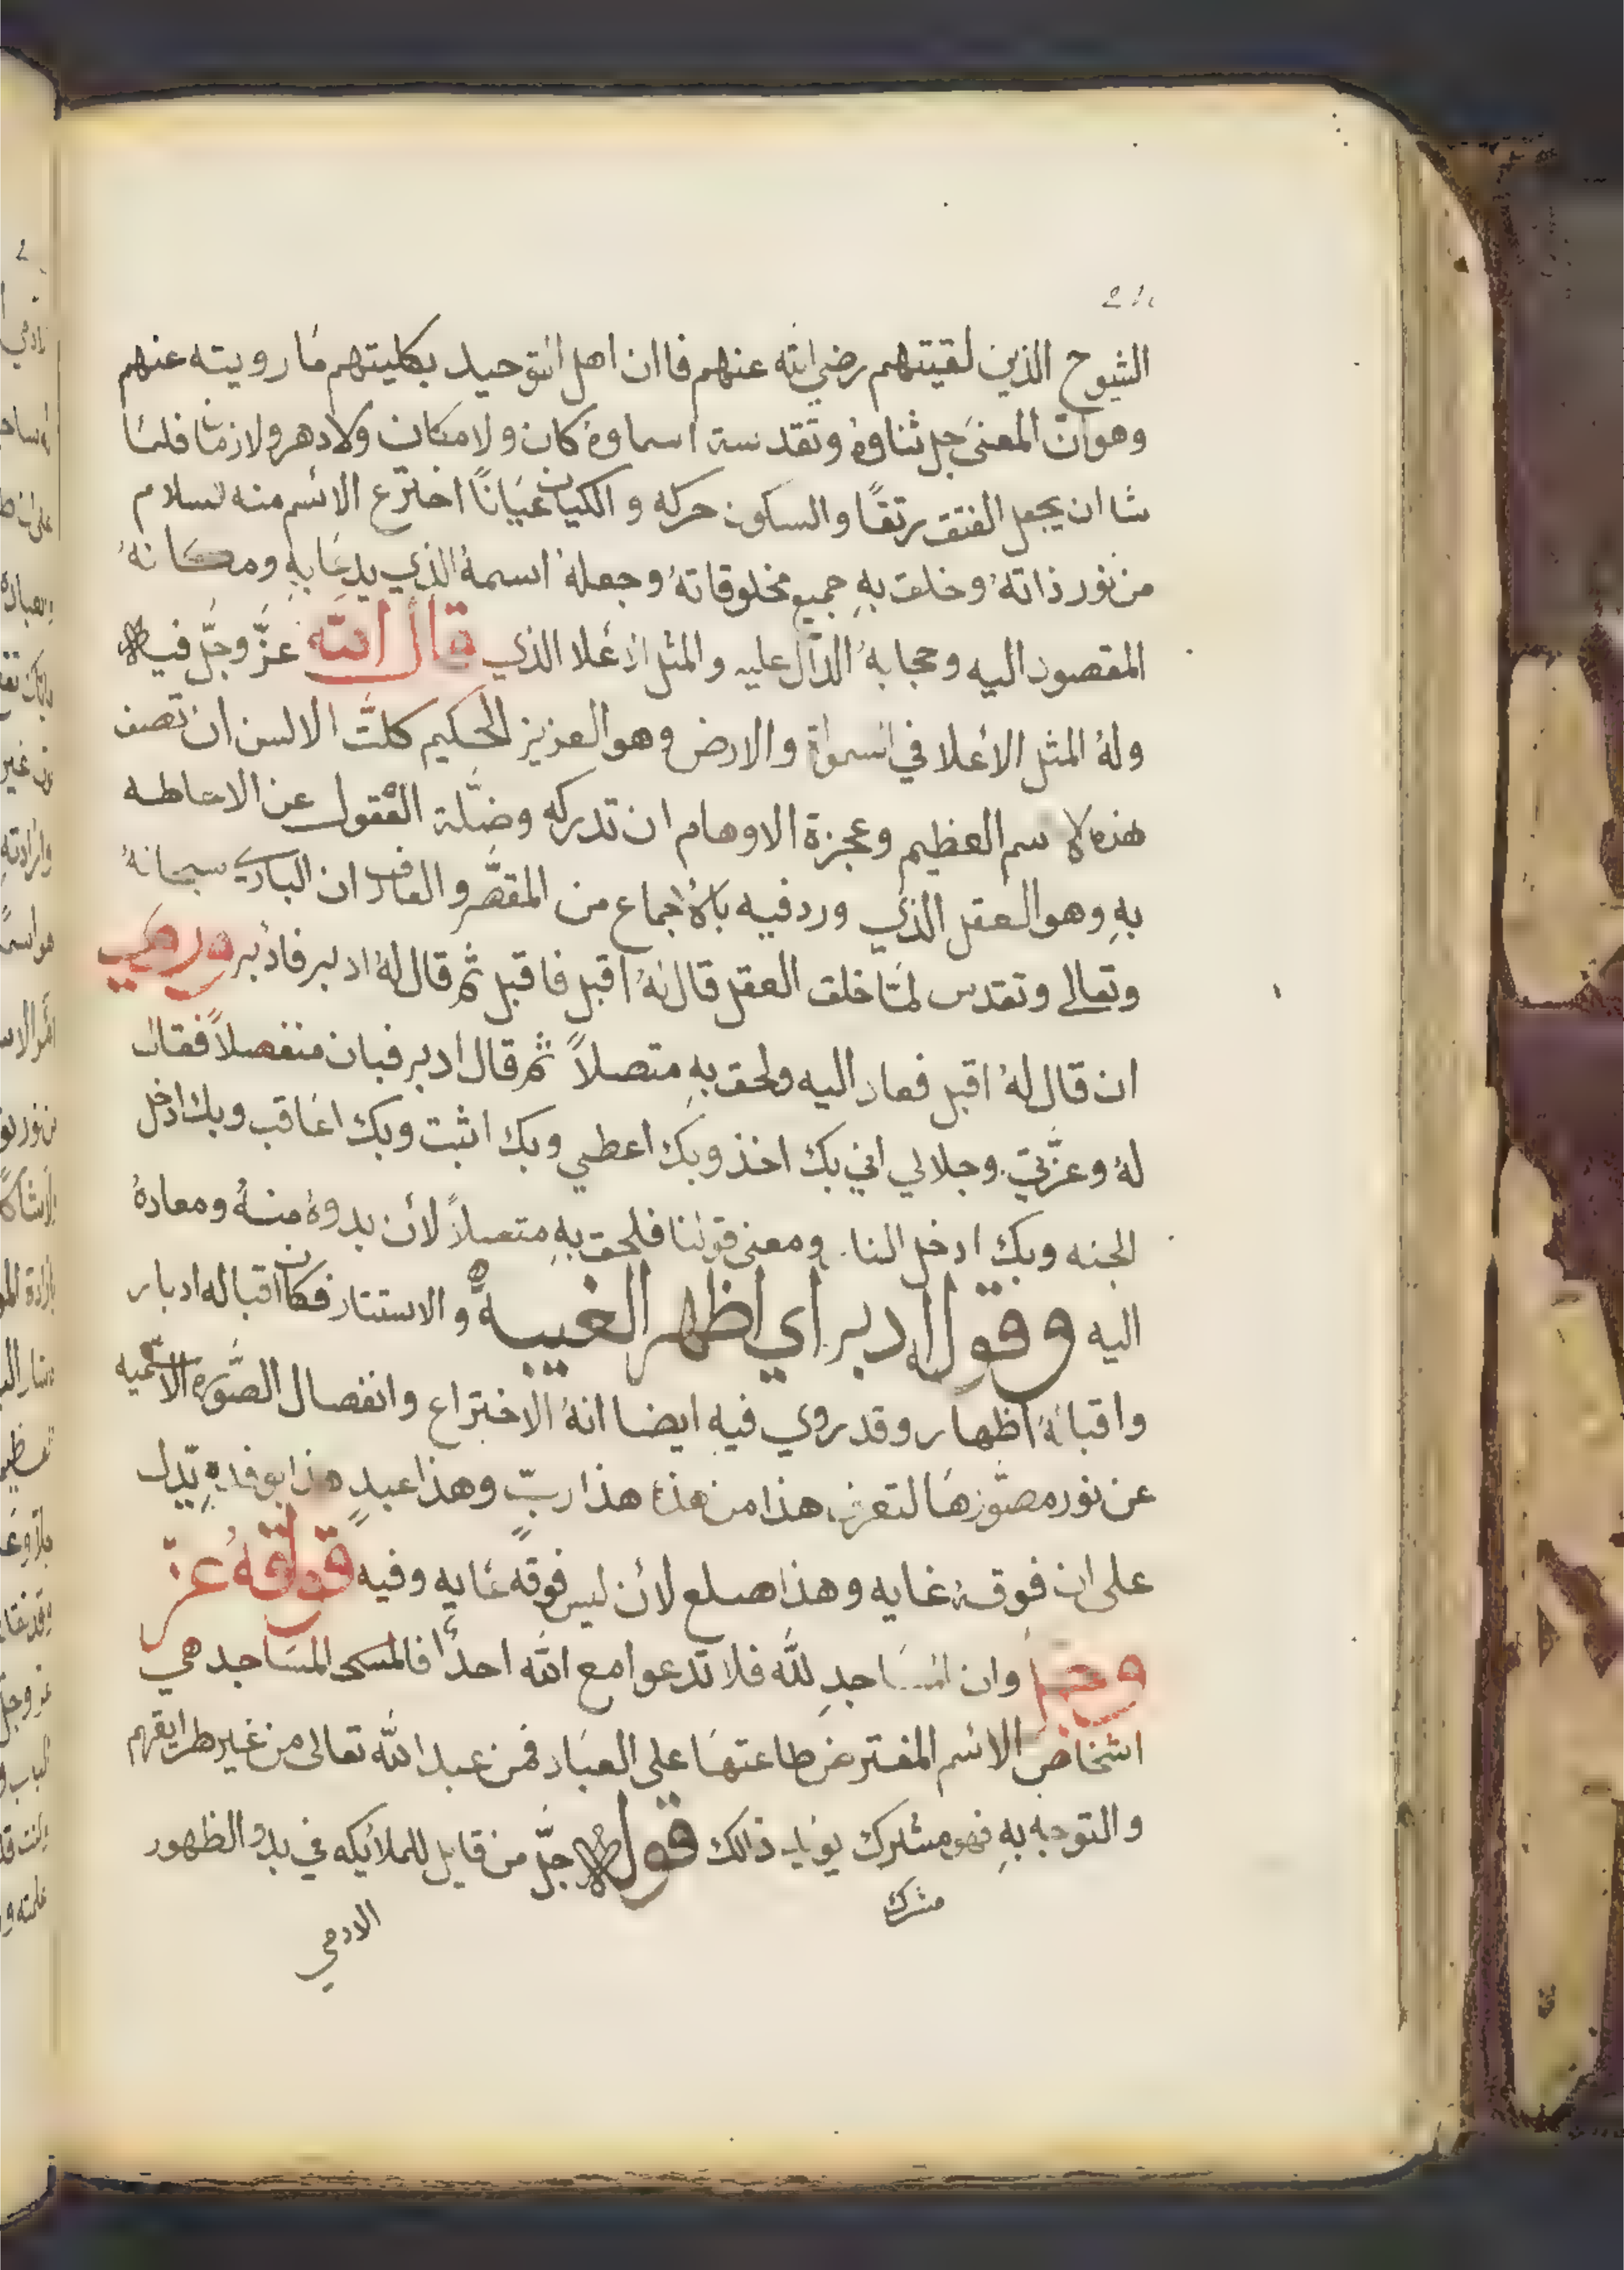 الشيوخ الذين لقيتهم رضي الله عنهم فاان اهل التوحيد بكليتهم ما رويته عنهم
وهو ان المعنى جل ثناوهُ وتقدسة اسماوهُ كان ولا مكان ولا دهر ولا زمان فلما
شا ان يجعل الفتق رتقًا والسكون حركه والكيان عيانًا اخترع الاسم منه السلام
من نور ذاتهُ وخلق بهِ جميع مخلوقاتهُ وجعلهُ اسمهُ الذي يدعا بهِ ومكانهُ
المقصود اليه وحجابهُ الدال عليه والمثل الاعلا الذي قال الله عزَّ وجلَّ فيه
ولهُ المثل الاعلا في السمواة والارض وهو العزيز الحكيم كلَّت الالسن ان تصف
هذه الاسم العظيم وعجزة الاوهام ان تدركه وضلَّة العقول عن الاحاطه
بهِ وهو العقل الذي ورد فيه بالاجماع من المقصَّر والعارف ان الباري سبحانهُ
وتعالى وتقدس لمَّا خلق العقل قال لهُ اقبل فاقبل ثم قال لهُ ادبر فادبر وروي
ان قال لهُ اقبل فعاد اليه ولحق بهِ متصلاً ثم قال ادبر فبان منفصلاً فقال
لهُ وعزَّتي وجلالي اني بك اخذ وبك اعطي وبك اثبت وبك اعاقب وبك ادخل
الجنه وبك ادخل النار ومعنى قولنا فلحق بهِ متصلاً لأن بدوهُ منهُ ومعادهُ
اليه وقوله ادبر اي اظهر الغيبه والاستتار فكان اقباله ادبار
واقبالهُ اظهار وقد روي فيهِ ايضا انهُ الاختراع وانفصال الصَّوره الاسميه
عن نور مصوّرها لتعرف هذا من هذا هذا ربّ وهذا عبدٍ هذا بوفده تدل
على ان فوقهُ غايه وهذا صلع لأن ليس فوقهُ غايه وفيه قولهُ عزَّ
وجل وان المساجدِ لله فلا تدعوا مع الله احداً فالمساجد هي
اشخاص الاسم المفترض طاعتها على العباد فمن عبد الله تعالى من غير طرايقهم
والتوجه بهِ فهو مشرك يويد ذالك قوله جلَّ من قايل للملائكه في بدو الظهور
مشرك
الادمي